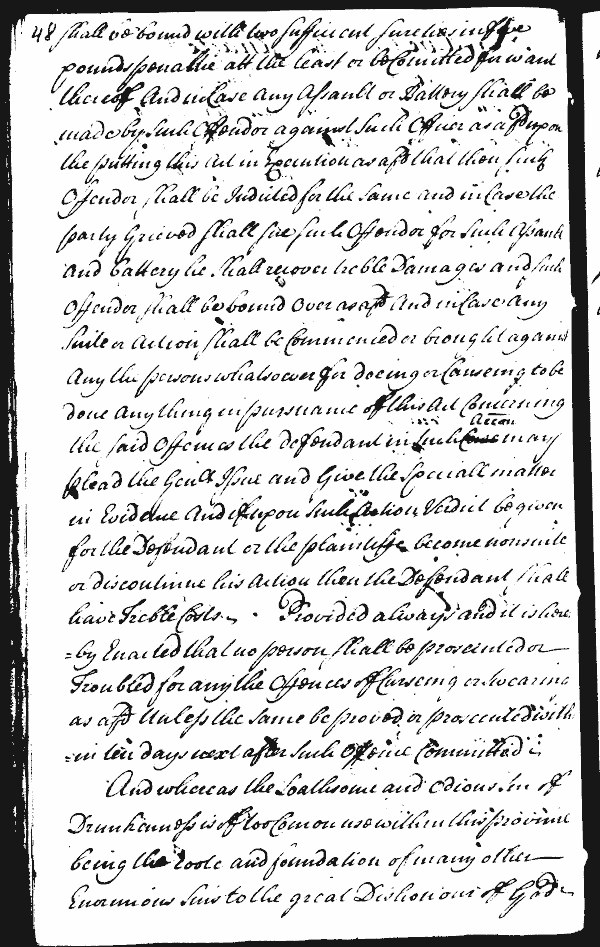 48 shall be bound with two sufficient sureties in five
pounds penaltie att the least or be Comitted for want
thereof And in Case any Assault or Battery shall be
made by such Offendor against such Officer as afd upon
the putting this act in Execution as afd that then such
Offendor shall be Indicted for the same and in Case the
party Grieved shall sue such Offendor for such Assault
and battery he shall recover treble Damages and such
Offendor shall be bound over as afd And in Case Any
Suite or action shall be Commenced or brought against
Any the persons whatsoever for doeing or Causeing to be
done Any thing in pursuance of this Act Concerning
the said Offences the defendant in such Accon may
plead the Genll Issue and Give the Speciall matter
in Evidence And if upon such Action Verdict be given
for the Defendant or the plaintiffe become nonsuite
or discontinue his Action then the Defendant shall
have Treble Costs. Provided always and it is here
=by Enacted that no person shall be prosecuted or
Troubled for any the Offences of Curseing or Swearing
as afd Unless the same be proved or prosecuted with
=in ten days next after such Offence Committed
And whereas the Loathsome and odious sin of
Drunkenness is of too Comon use within this province
being the roote and foundation of many other
Enormious sins to the great Dishonour of God